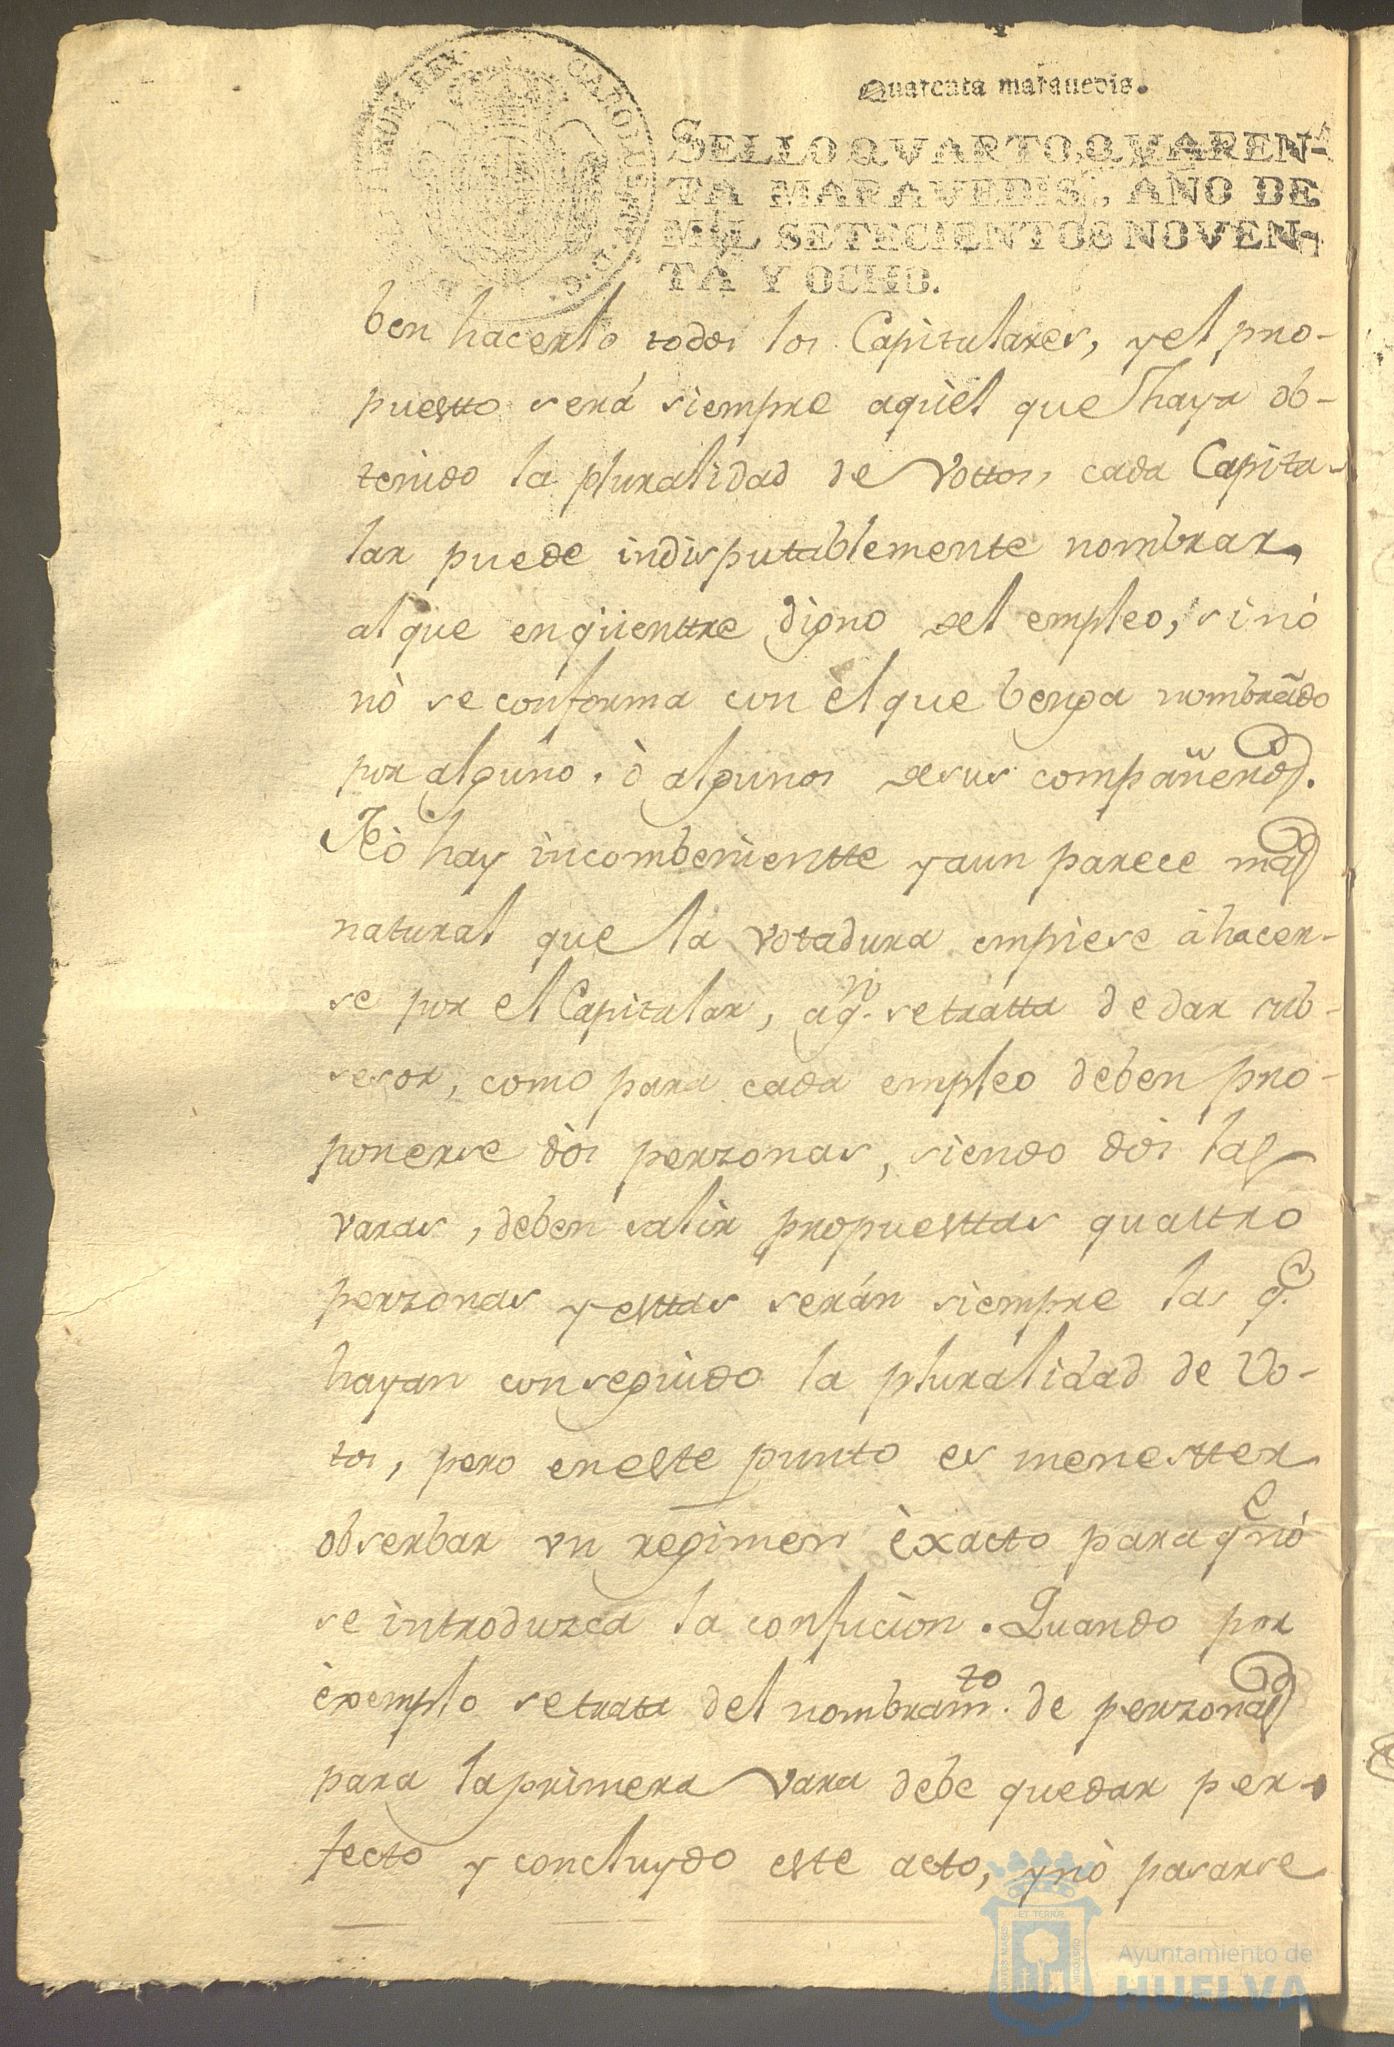 Quarenta marauedis.
SELLO QVARTO, QVAREN-
TA MARAVEDIS, AÑO DE
MIL SETECIENTOS NOVEN-
TA Y OCHO.
ben hacerlo todos los Capitulares, y el pro-
puestto será siempre aquèl que haya ob-
tenido la pluralidad de Vottos, cada Capitu-
lar puede indisputablemente nombrar
al que enqüenttre digno del empleo, si nó
nò se conforma con èl que benga nombrado
por alguno, ò algunos de sus compañeros.
Nò hay incombenientte y aun parece mas
natural que la votadura empiese à hacer-
se por el Capitular, aqn. se tratta de dar sub-
sesor, como para cada empleo deben pro-
ponerse dòs perzonas, siendo dòs las
varas, deben salìr propuesttas quattro
perzonas y esttas serán siempre las qe.
hayan conseguido la pluralidad de Vo-
tos, pero en este punto es menestter
obserbar vn regimen èxacto para qe nó
se introduzca la confucion. Quando por
èxemplo se trata del nombramto. de perzonas
para la primera Vara debe quedar per-
fecto y concluydo este acto, y nò pasarse
ET TERRÆ
Ayuntamiento de
HUELVA